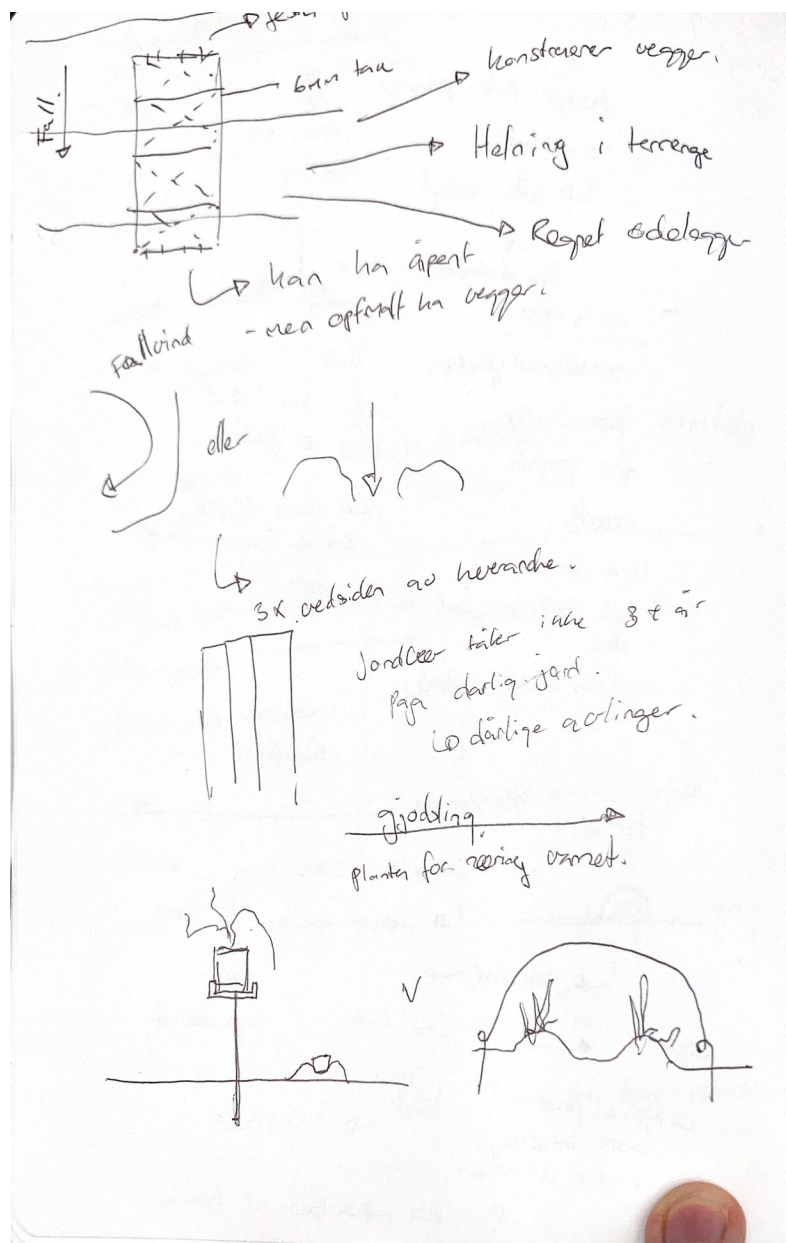 Fall.
6mm tau
konstruerer vegger.
Helning i terrenge
Regnet ødelegger
kan ha åpent
- men optimalt ha vegger.
Fallvind
eller
3x vedsiden av hverandre.
Jordbær tåler ikke 3 år
Pga dårlig jord.
↳ dårlige avlinger.
gjødsling.
planta før næring vannet.
V